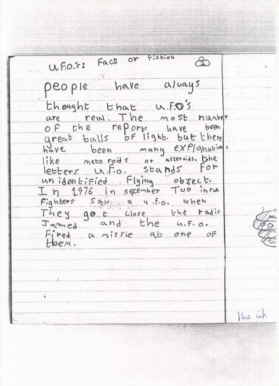 U.F.O.'s Fact or Fiction
people have always
thought that U.F.O'S
are real. The most number
OF the report have been
great balls of light. but them
have been many explanation.
like meteroids or asteroids. the
letters U.F.o. stands for
unidentified Flying object.
In 1976 In september Two iran
Fighters Saw a U.F.O. when
They got close the radio
Jamed and the U.F.O.
Fired a missle at one of
them.